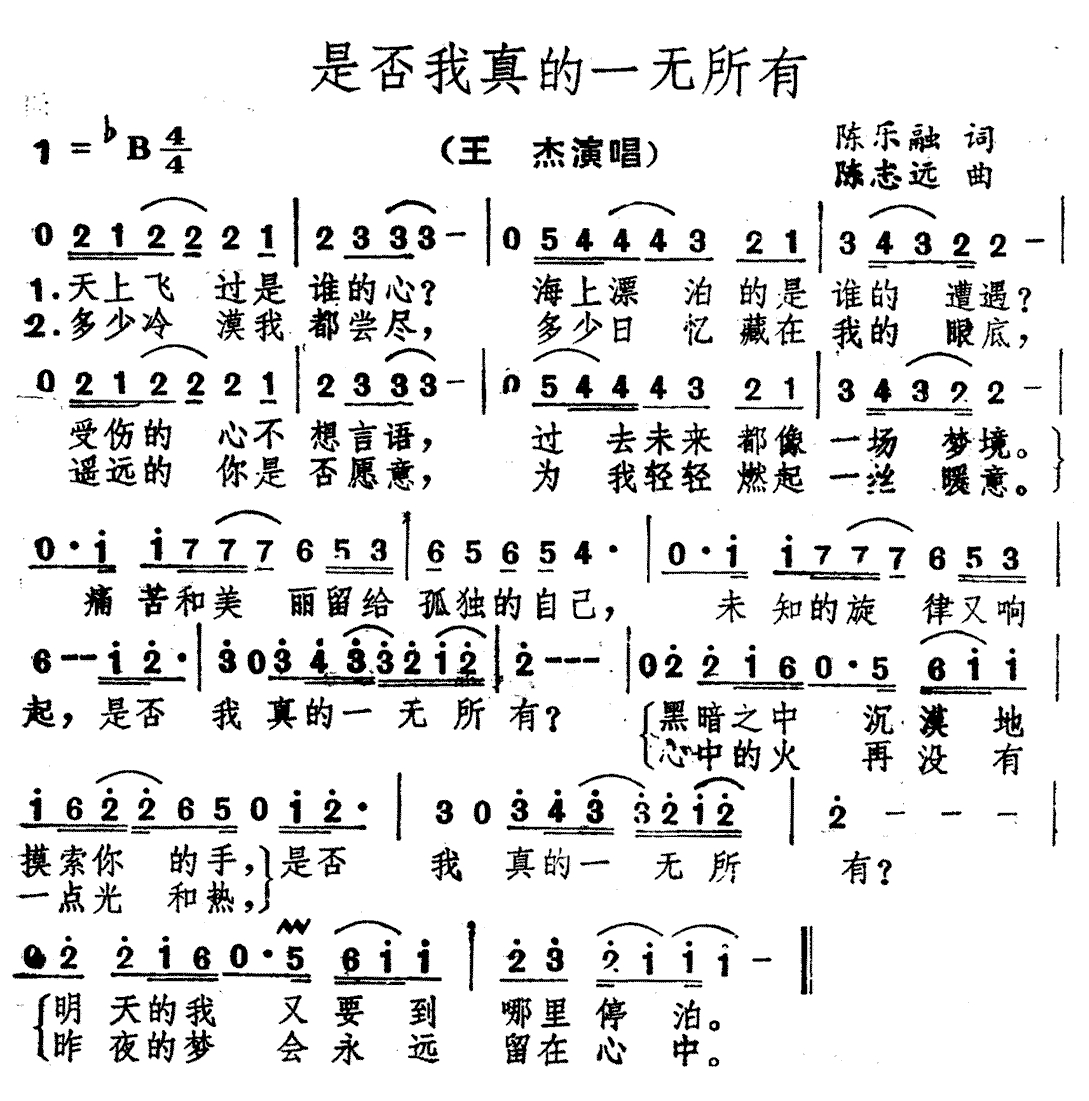 是否我真的一无所有
1 = ♭B 4/4 （王 杰演唱） 陈乐融 词
陈志远 曲
0 2 1 2 2 2 1 | 2 3 3 3 3 – | 0 5 4 4 4 3 2 1 | 3 4 3 2 2 – |
1.天上飞 过是 谁的心？ 海上漂 泊的是 谁的 遭遇？
2.多少冷 漠我 都尝尽， 多少日 忆藏在 我的 眼底，
0 2 1 2 2 2 1 | 2 3 3 3 3 – | 0 5 4 4 4 4 3 2 1 | 3 4 3 2 2 – |
受伤的 心不 想言语， 过 去未来 都像 一场 梦境。
遥远的 你是 否愿意， 为 我轻轻 燃起 一丝 暖意。
0 · i i 7 7 7 7 6 5 3 | 6 5 6 5 4 · | 0 · i i 7 7 7 7 6 5 3 |
痛 苦和美 丽留给 孤独的自己， 未 知的旋 律又响
6 – – i 2 · | 3 0 3 4 3 3 2 i 2 | 2 – – – | 0 2 2 i 6 0 · 5 6 i i |
起，是否 我 真的一 无 所 有？ 黑暗之中 沉 漠 地
心中的火 再 没 有
i 6 2 2 6 5 0 i 2 · | 3 0 3 4 3 3 2 i 2 | 2 – – – |
摸索你 的手，是否 我 真的一 无 所 有？
一点光 和热，
0 2 2 i 6 0 · 5 6 i i | 2 3 2 i i i – ‖
明 天的我 又 要 到 哪里 停 泊。
昨 夜的梦 会 永 远 留在 心 中。